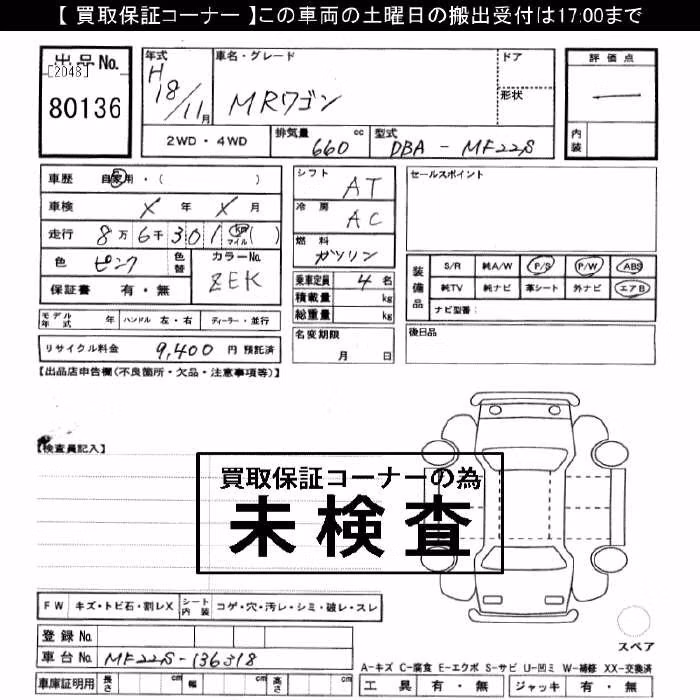 【 買取保証コーナー 】この車両の土曜日の搬出受付は17:00まで
出品No.
[2048]
80136
年式
H18/11月
車名・グレード
MRワゴン
ドア
形状
評価点
内装
2WD・4WD
排気量 660 cc
型式 DBA - MF22S
車歴 自家用・( )
車検 X 年 X 月
走行 8万6千301 km マイル ( )
色 ピンク
色替
カラーNo. ZEK
保証書 有・無
シフト AT
冷房 AC
燃料 ガソリン
乗車定員 4 名
積載量 kg
総重量 kg
セールスポイント
装備品
S/R 純A/W P/S P/W ABS
純TV 純ナビ 革シート 外ナビ エアB
ナビ型番:
モデル年式 年 ハンドル 左・右 ディーラー・並行
名変期限
月 日
後日品
リサイクル料金 9,400 円 預託済
【出品店申告欄(不良箇所・欠品・注意事項等)】
【検査員記入】
買取保証コーナーの為
未検査
FW キズ・トビ石・割レX
シート内装 コゲ・穴・汚レ・シミ・破レ・スレ
登録No.
車台No. MF22S-136318
車庫証明用 長さ cm 幅 cm 高さ cm
スペア
A-キズ C-腐食 E-エクボ S-サビ U-凹ミ W-補修 XX-交換済
工具 有・無 ジャッキ 有・無